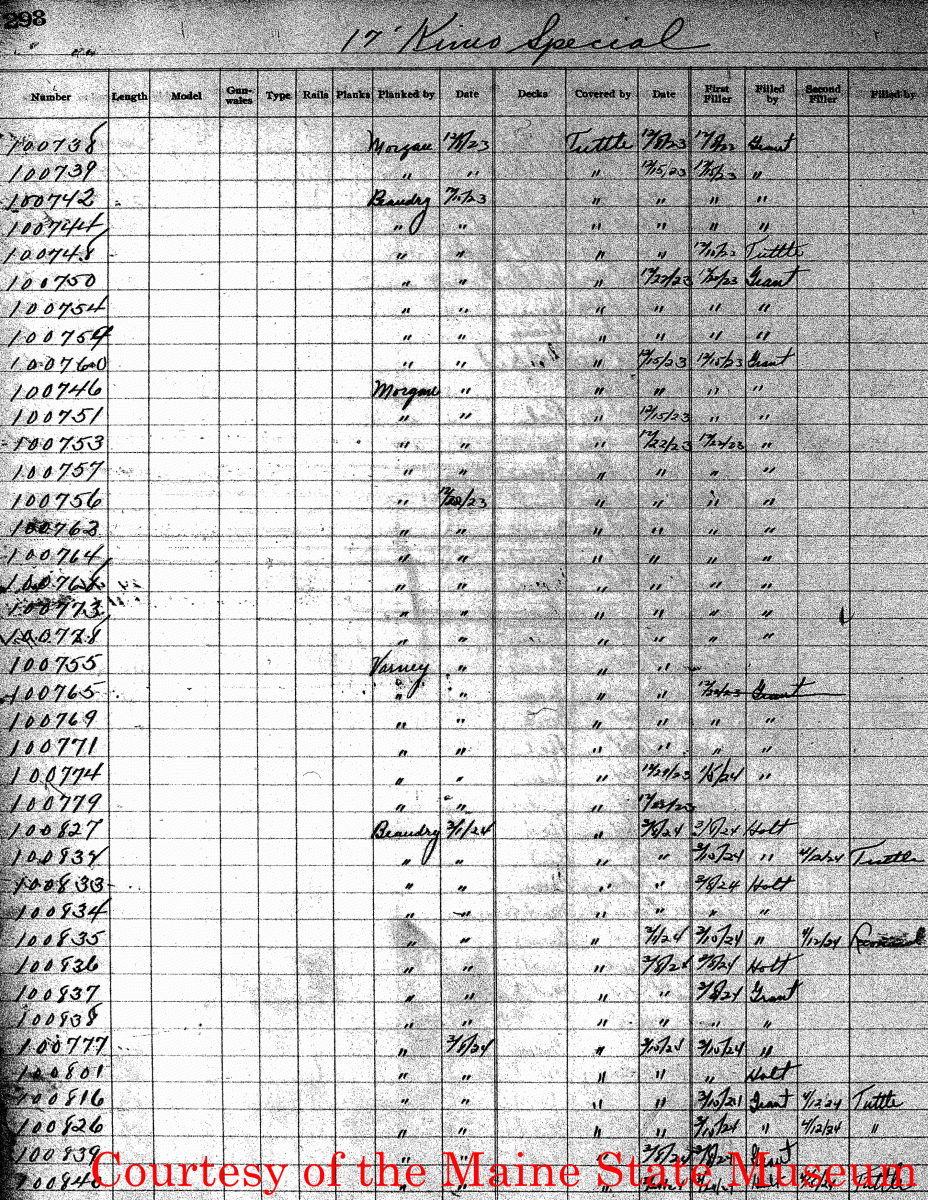 293
17' Kineo Special
Number Length Model Gun-wales Type Rails Planks Planked by Date Decks Covered by Date First Filler Filled by Second Filler Filled by
100738 Morgan 12/8/23 Tuttle 12/8/23 Grant
100739 " " " 12/15/23 12/15/23 "
100742 Beaudry " " " "
100744 " " " " " "
100748 " " " " Tuttle
100750 " " " 12/22/23 12/22/23 Grant
100754 " " " " " "
100759 " " " " " "
100760 " " " 12/15/23 12/15/23 Grant
100746 Morgan " " " " "
100751 " " " 12/15/23 " "
100753 " " " 12/22/23 12/22/23 "
100757 " " " " " "
100756 " " " " "
100762 " " " " " "
100764 " " " " " "
" " " " " "
100773 " " " " " "
100778 " " " " " "
100755 Varney " " "
100765 " " " " Grant
100769 " " " " " "
100771 " " " " " "
100774 " " " 12/29/23 1/5/24 "
100779 " " "
100827 Beaudry 3/1/24 " 3/8/24 3/8/24 Holt
" " " " 3/15/24 " 4/12/24 Tuttle
100833 " " " " 3/8/24 Holt
100834 " " " " " "
100835 " " " 3/1/24 3/10/24 " 4/12/24
100836 " " " 3/8/24 3/8/24 Holt
100837 " " " " 3/8/24 Grant
100838 " " " " " "
100777 " 3/8/24 " 3/15/24 3/15/24 "
100801 " " " " " Holt
100816 " " " " Grant 4/12/24 Tuttle
100826 " " " " 3/15/24 " 4/12/24 "
100839 " " " 3/8/24 Grant
100840 " " " Tuttle
Courtesy of the Maine State Museum